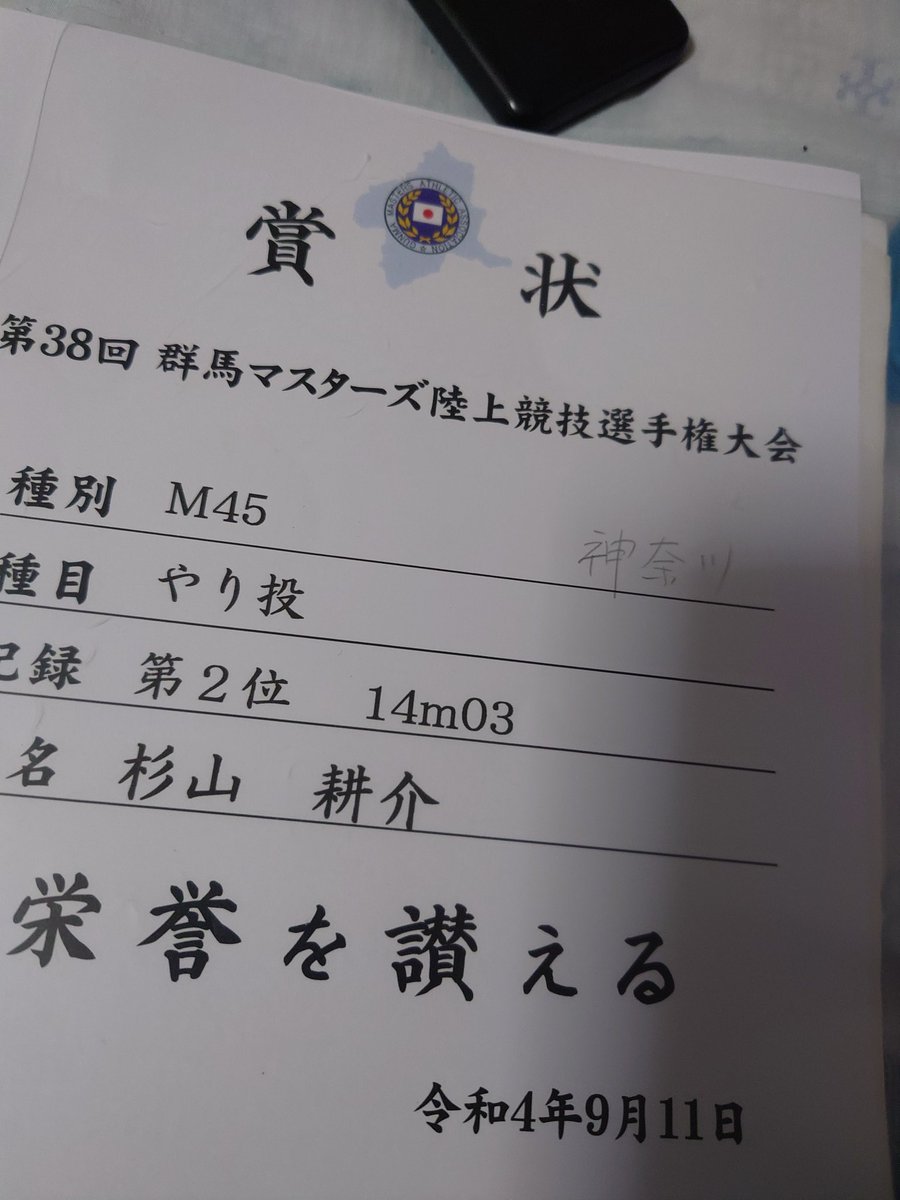 賞状
MASTERS ATHLETIC ASSOCIATION GUNMA
第38回 群馬マスターズ陸上競技選手権大会
種別 M45
神奈川
種目 やり投
記録 第2位 14m03
名 杉山 耕介
栄誉を讃える
令和4年9月11日